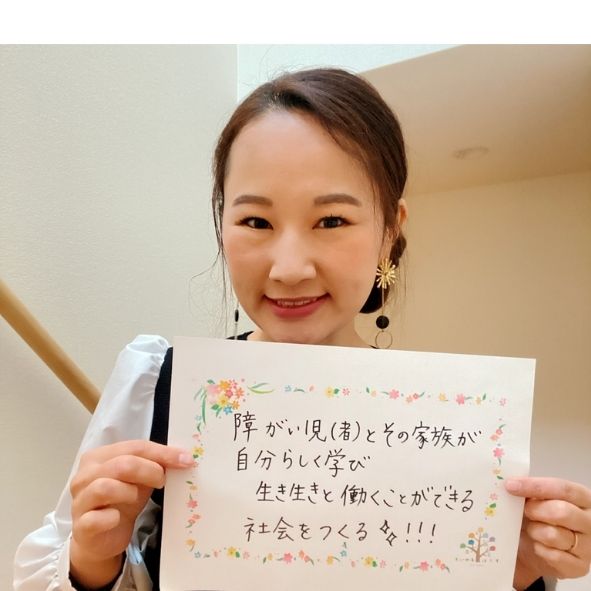 障がい児(者)とその家族が
自分らしく学び
生き生きと働くことができる
社会をつくる✨!!!